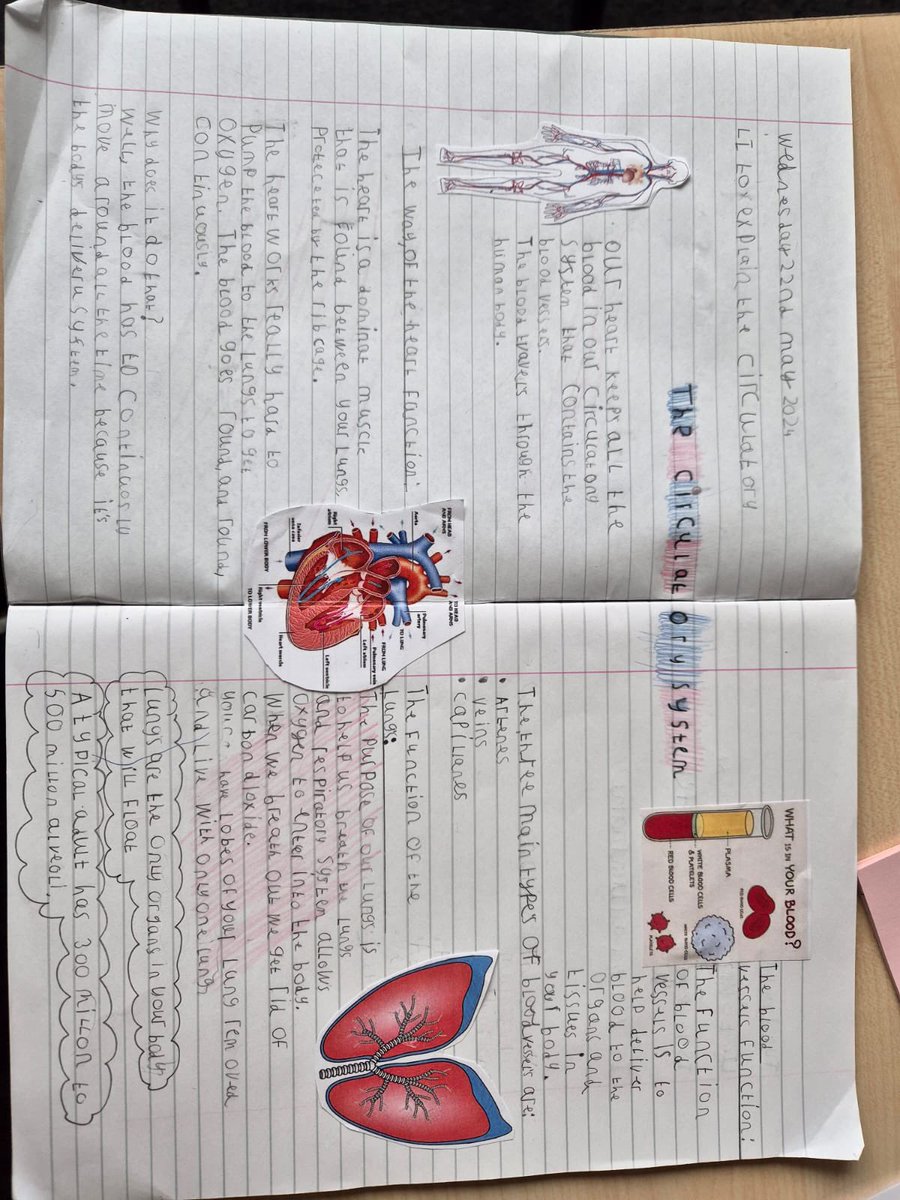 wednesday 22nd may 2024
LI to explain the circulatory
The circulatory system
our heart keeps all the
blood in our circulatory
system that contains the
blood vesseles.
The blood travels through the
human body.
The way of the heart function:
The heart is a dominat muscle
that is found between your lungs,
The heart works really hard to
Pump the blood to the lungs to get
oxygen. The blood goes round, and round,
continuously.
Why does it do that?
Well, the blood has to
move around all the time because it's
the bodys delivery system.
FROM HEAD AND ARMS
Aorta
TO HEAD AND ARMS
Pulmonary artery
TO LUNG
FROM LUNG
Pulmonary vein
Left atrium
Left ventricle
Heart muscle
TO LOWER BODY
Right ventricle
FROM LOWER BODY
Inferior vena cava
Right atrium
WHAT IS IN YOUR BLOOD?
PLASMA
WHITE BLOOD CELLS
& PLATELETS
RED BLOOD CELLS
RED BLOOD CELLS
WHITE BLOOD CELLS
PLATELETS
The blood
function:
The function
of blood
vessels is to
help deliver
blood to the
organs and
tissues in
your body.
The three main types of blood vessels are:
• Arteries
• veins
• capillaries
The function of the
lungs:
The purpose of our lungs is
to help us breath the lungs
and respiratory system allows
oxygen to enter into the body.
When we breath out we get rid of
carbon dioxide.
have lobes of your lung removed
and live with only one lung
Lungs are the only organs in your body
that will float
A typical adult has 300 million to
500 million alveoli.